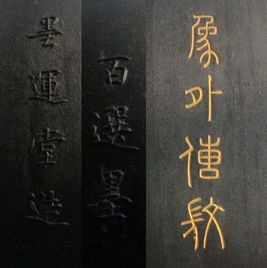 象外傳
百選墨
墨運堂造